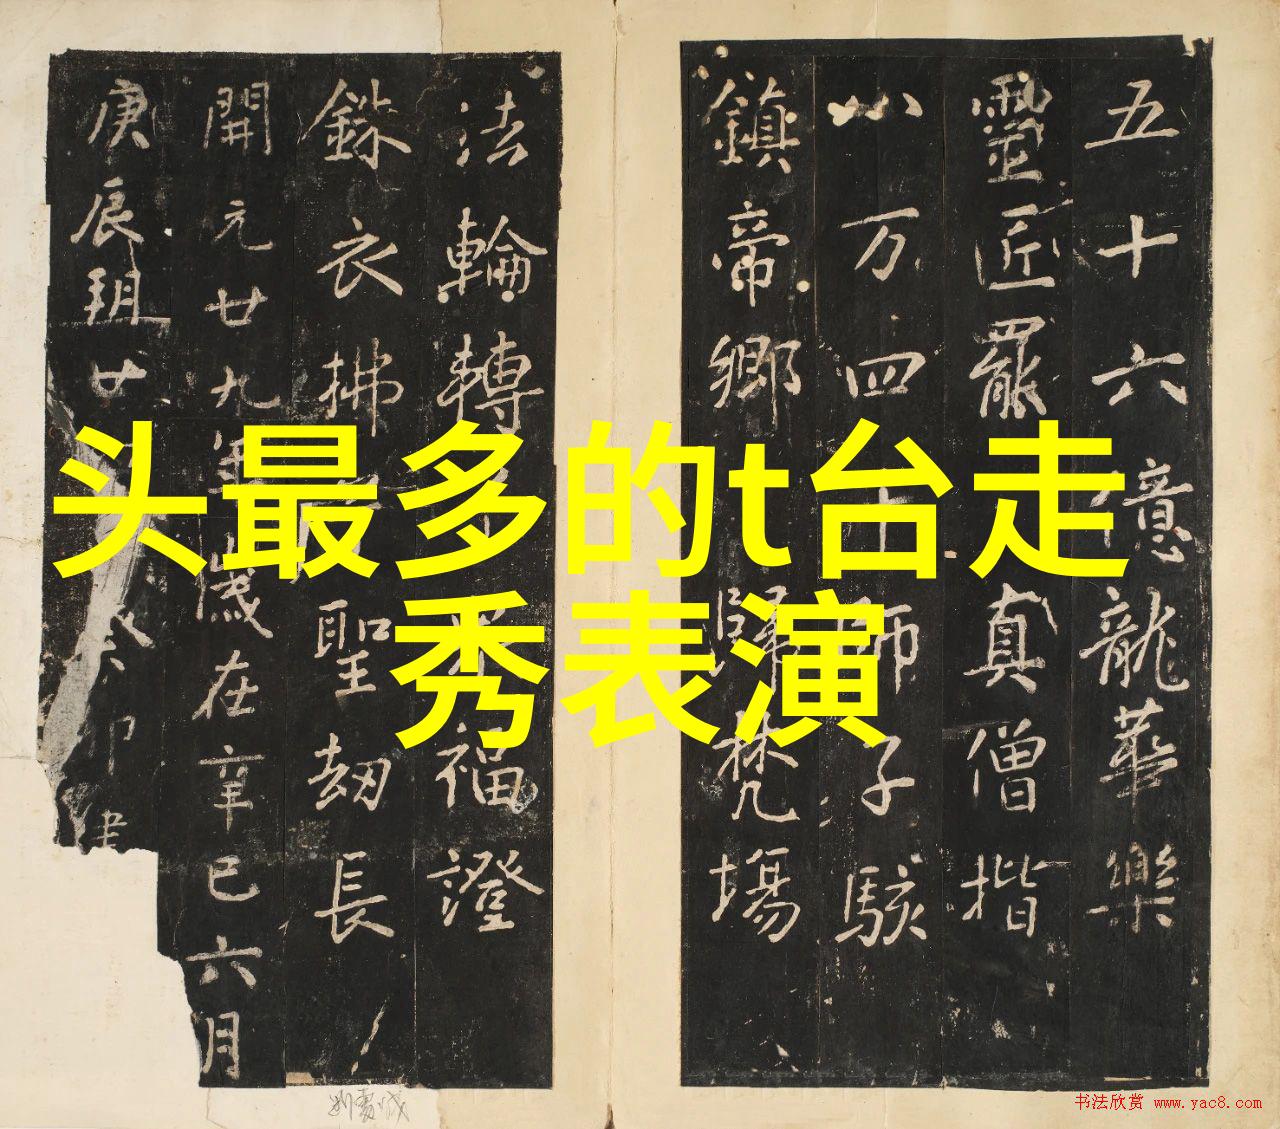 头最多的t台走
秀表演
五十六億龍華樂
靈匠罷真僧揩
万四師子駭
鎮帝鄉歸梵場
法輪轉福證
銖衣拂聖劫長
開元廿九年歲在辛巳六月
庚辰朔廿癸卯建
书法欣赏 www.yac8.com